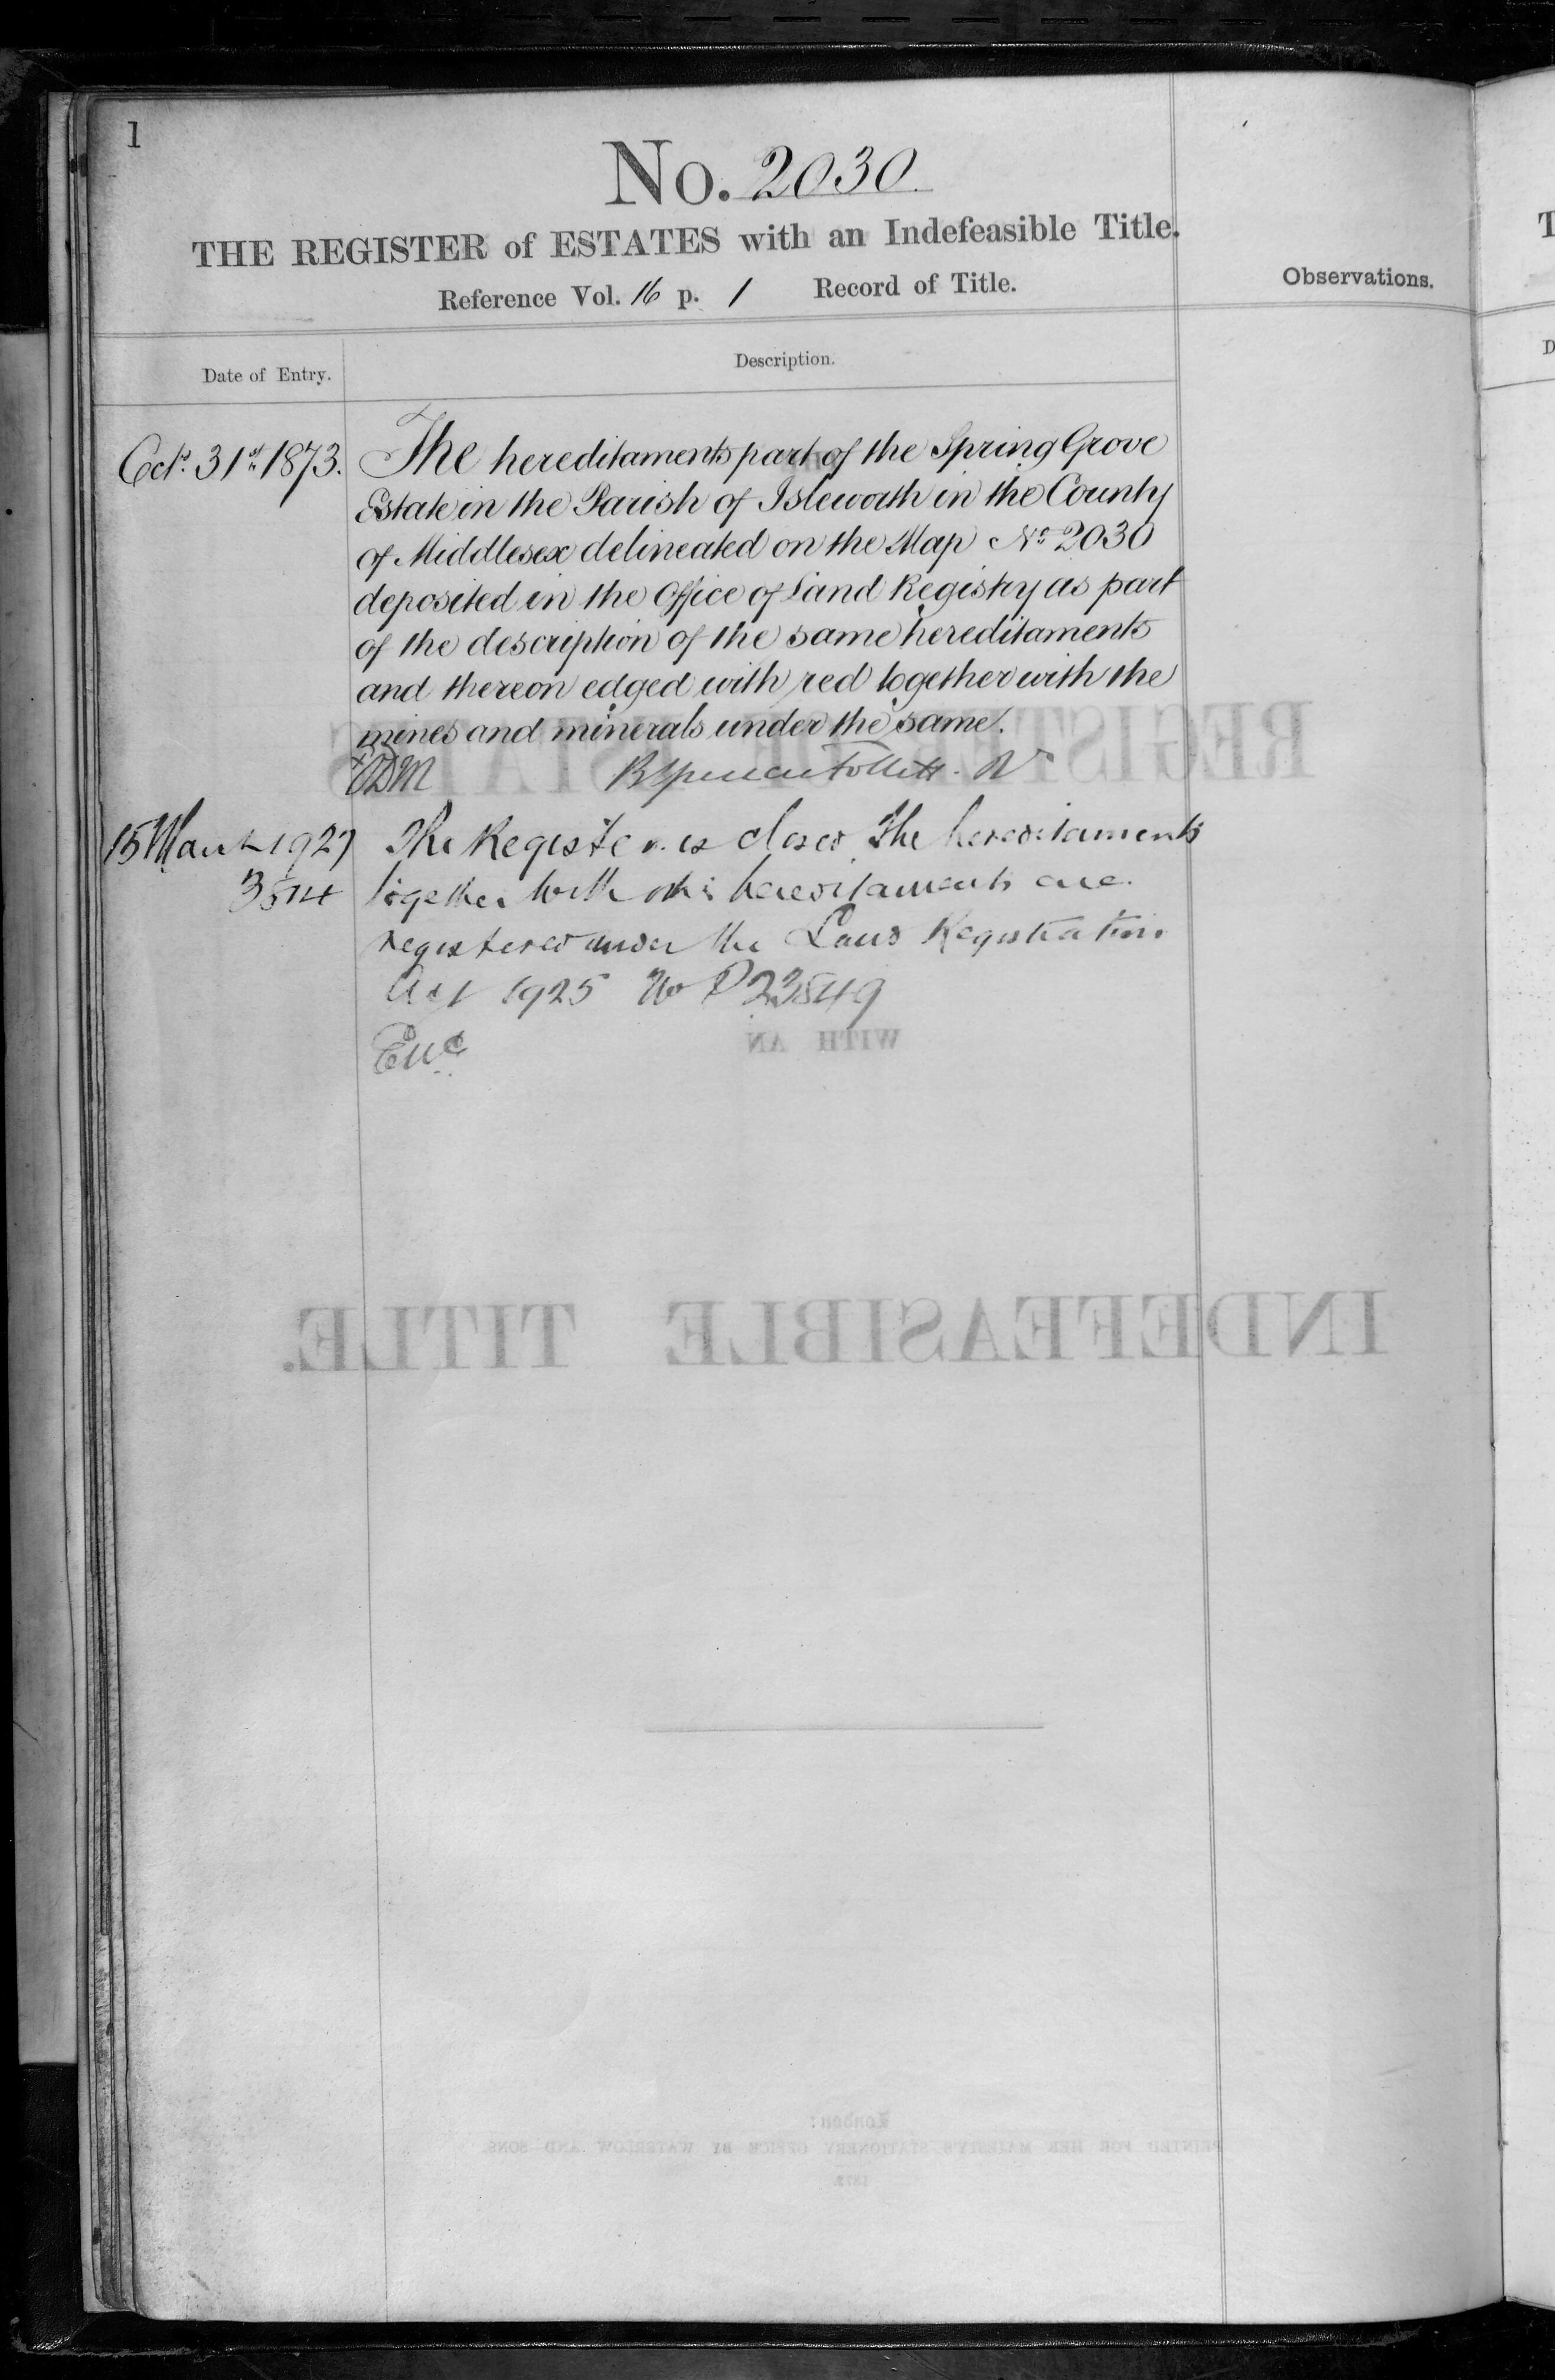 1
No. 2030
THE REGISTER of ESTATES with an Indefeasible Title.
Reference Vol. 16 p. 1 Record of Title.
Observations.
Date of Entry.
Description.
Octr. 31st 1873.
The hereditaments part of the Spring Grove
Estate in the Parish of Isleworth in the County
of Middlesex delineated on the Map No. 2030
deposited in the Office of Land Registry as part
of the description of the same hereditaments
and thereon edged with red together with the
mines and minerals under the same.
B Spencer Follett. Rr
15 March 1927
3514
The Register is closed The hereditaments
together with other hereditaments are
registered under the Land Registration
Act 1925 No P23549
REGISTER OF ESTATES
WITH AN
INDEFEASIBLE TITLE.
London:
PRINTED FOR HER MAJESTY'S STATIONERY OFFICE BY WATERLOW AND SONS